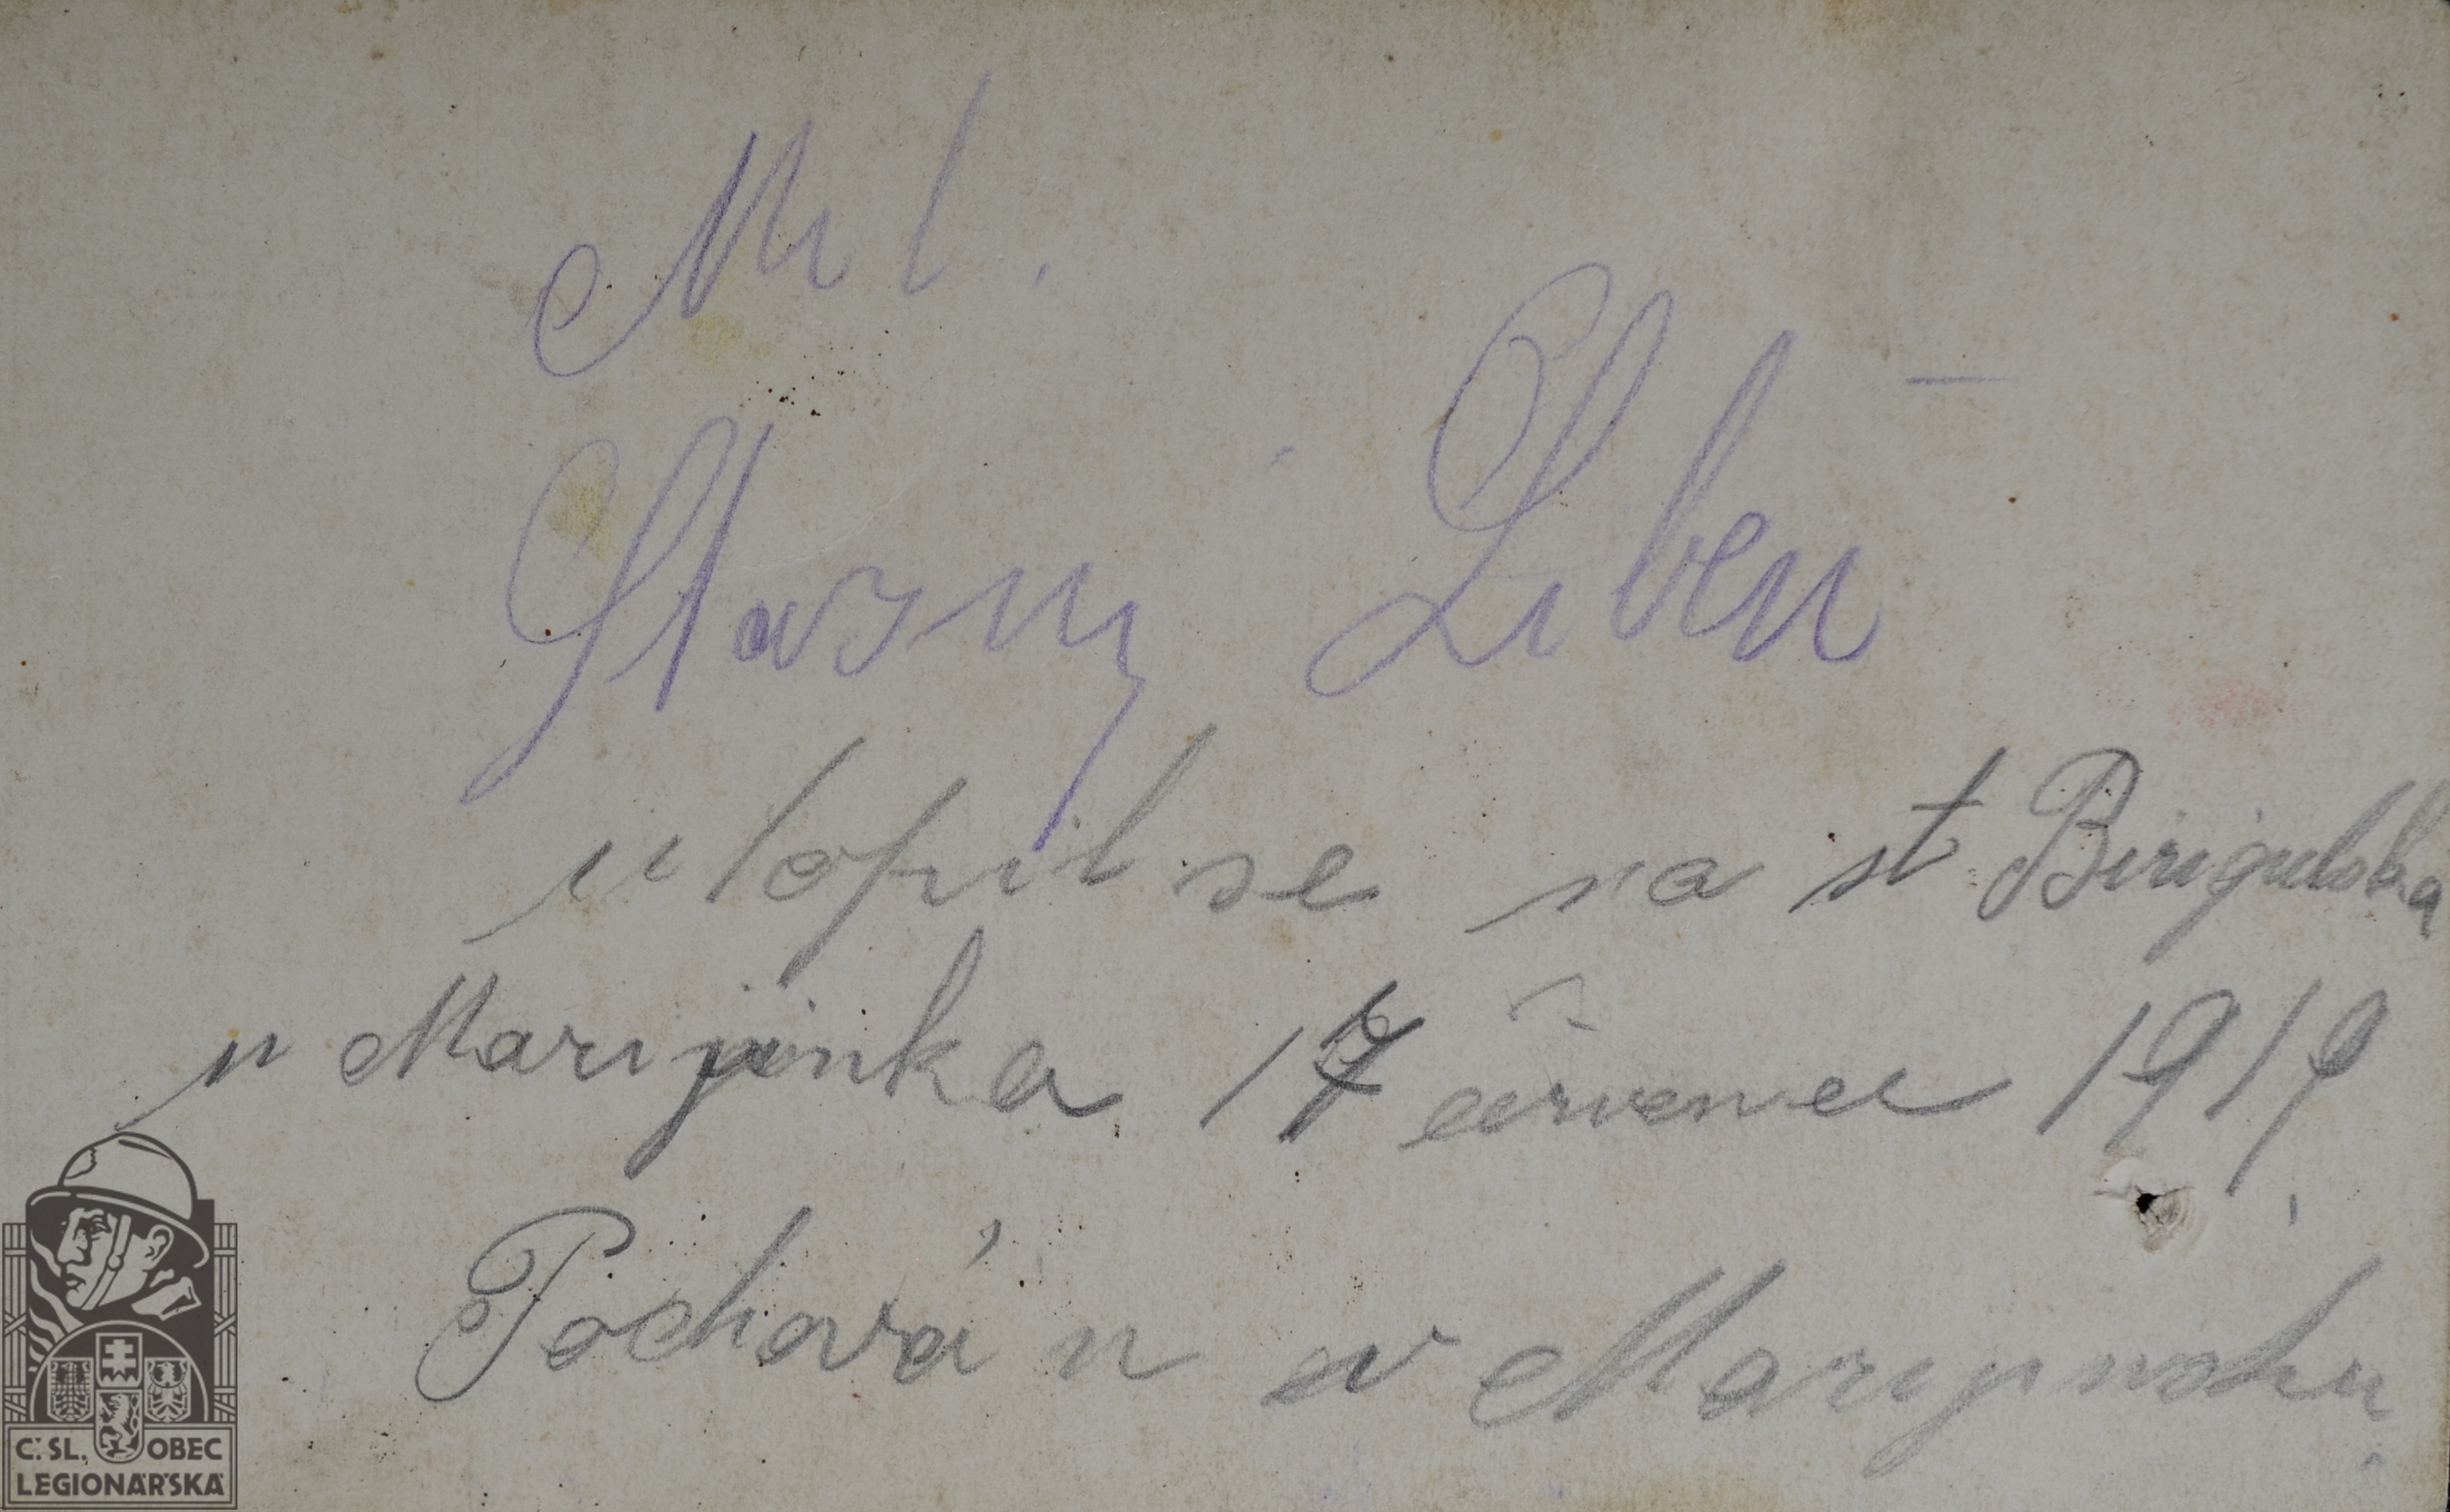 Ml.
Starý Libeň
utopil se na st Birigulska
u Marijinka 17 července 1919
Pochován v Marijinsku.
Č. SL. OBEC
LEGIONÁŘSKÁ